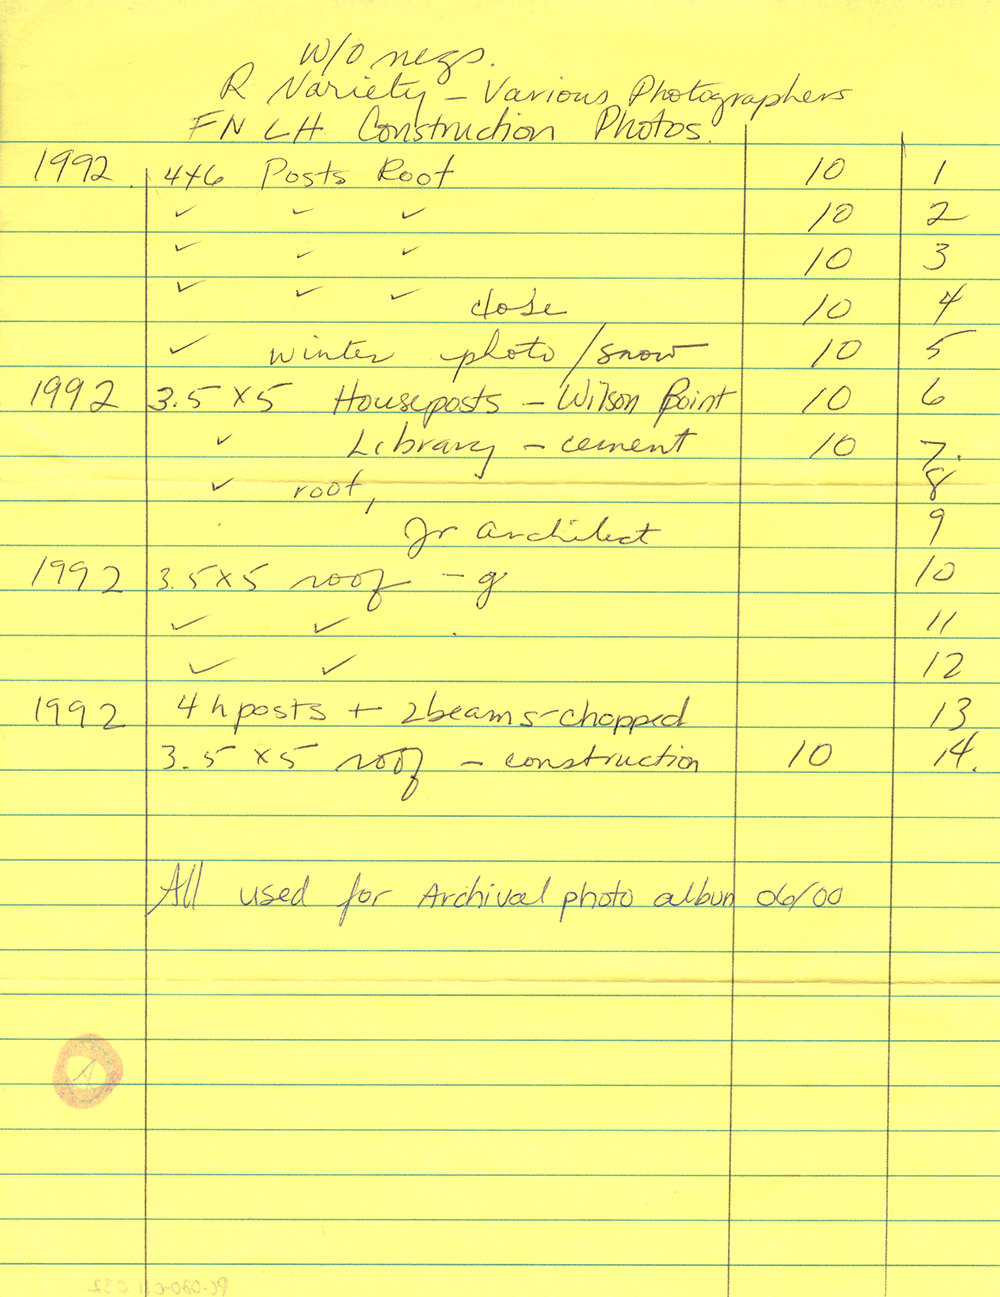 W/O negs.
R Variety - Various Photographers
FN LH Construction Photos.
1992. 4x6 Posts Root 10 1
✓ ✓ ✓ 10 2
✓ ✓ ✓ 10 3
✓ ✓ ✓ close 10 4
✓ winter photo/snow 10 5
1992 3.5 x 5 Houseposts - Wilson Point 10 6
✓ Library - cement 10 7.
✓ root, 8
Jr architect 9
1992 3.5 x 5 roof - g 10
✓ ✓ 11
✓ ✓ 12
1992 4 hposts + 2beams-chopped 13
3.5 x 5 roof - construction 10 14.
All used for Archival photo album 06/00
A
PC-080-011-032